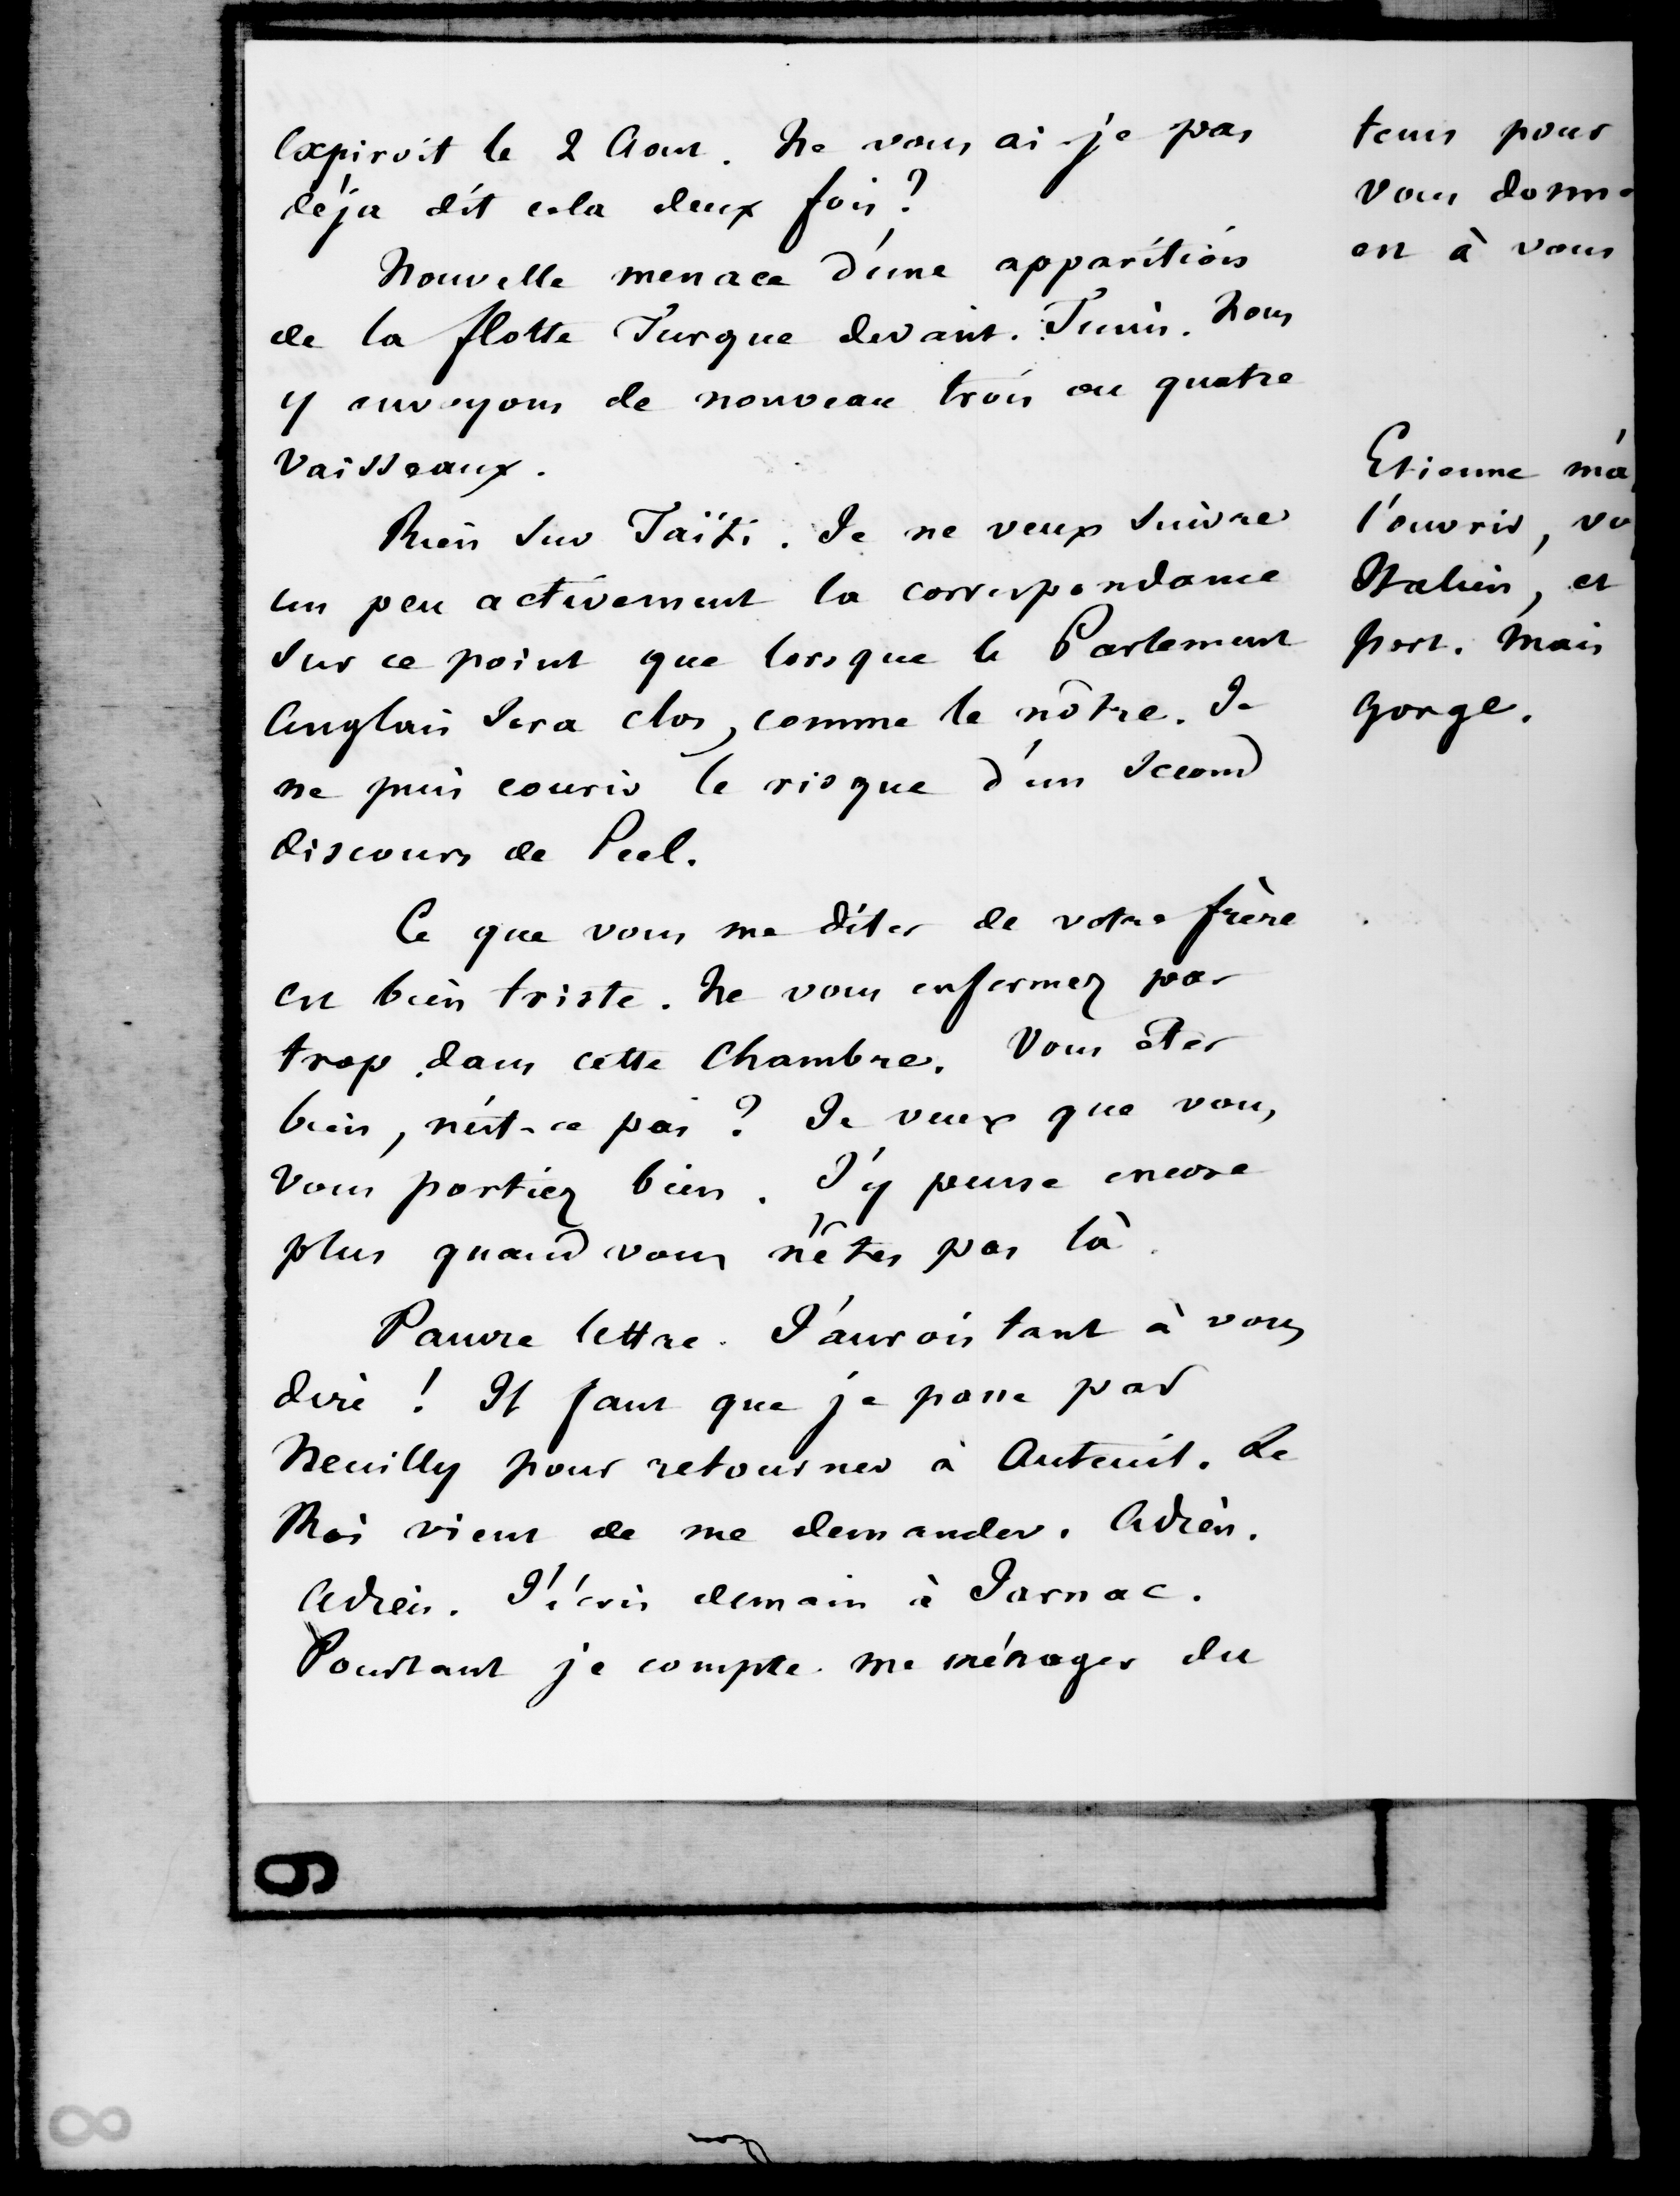 expiroit le 2 Aout. Ne vous ai-je pas
déja dit cela deux fois?
Nouvelle menace d'une apparition
de la flotte Turque devant Tunis. Nous
y envoyons de nouveau trois ou quatre
vaisseaux.
Rien sur Taïti. Je ne veux suivre
un peu activement la correspondance
sur ce point que lorsque le Parlement
Anglais sera clos, comme le nôtre. Je
ne puis courir le risque d'un second
discours de Peel.
Ce que vous me dites de votre frère
est bien triste. Ne vous enfermez pas
trop dans cette Chambre. Vous êtes
bien, n'est-ce pas? Je veux que vous
vous portiez bien. J'y pense encore
plus quand vous n'êtes pas là.
Pauvre lettre. J'aurois tant à vous
dire! Il faut que je passe par
Neuilly pour retourner à Auteuil. Le
Roi vient de me demander. Adieu.
Adieu. J'écris demain à Jarnac.
Pourtant je compte me ménager du
tems pour
vous donn
est à vous
Etienne m'a
l'ouvrir, vo
Italien, et
port. Mais
gorge.
9
8